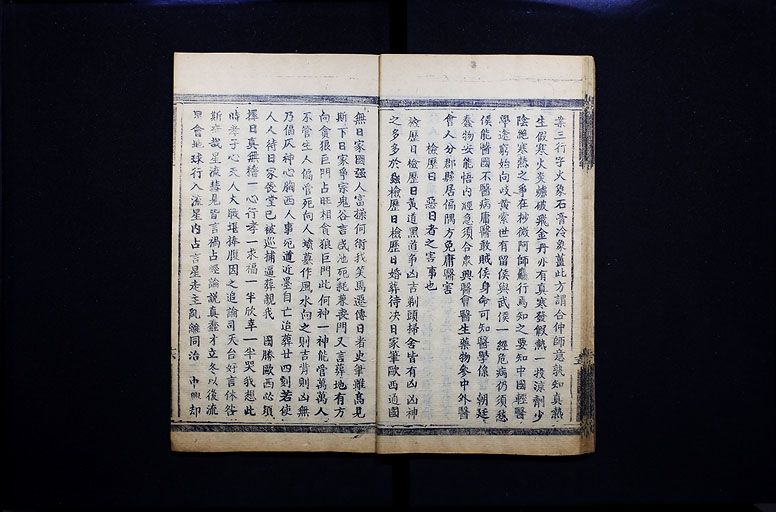 素三行字火象石膏冷象薑此方謂合仲師意孰知真熱
生假寒火炎爐破飛金丹亦有真寒發假熱一投涼劑少
陰絕寒熱之爭在秒微阿師蠢行焉知之要知中國輕醫
學遂窮始向岐黃索世有留侯與武侯一經危病仍須愁
侯能醫國不醫病庸醫敢賊侯身命可知醫學係 朝廷
蠢物安能悟內經急須合眾興醫會醫生藥物參中外醫
會人分郡縣居僞隅方免庸醫害
檢歷日 惡日者之害事也
檢歷日檢歷日黃道黑道爭凶吉剃頭掃舍皆有凶凶神
之多多於蝨檢歷日檢歷日婚葬待決日家筆歐西通國
無日家國强人富操何術我笑馬遷傳日者史筆雖高見
斯下日家爭宗鬼谷言咸池死耗兼喪門又言葬地有方
向貪狼巨門占旺相貪狼巨門此何神一神能管萬萬人
不管生人偏管死向人墳墓作風水向之則吉背則凶無
乃偪仄神心胸西人事死道近墨自亡追葬廿四刻若使
人人待日家喪堂已被巡捕逼葬親我 國勝歐西必須
擇日真無稽一心行孝一求福一半欣幸一半哭我想此
時孝子心天人大戰堪捧腹因之追論司天台好言休咎
斯虛哉星流彗見皆言禍占經論說真蠢才立冬以後流
星會地球行入流星內占言星走主亂離同治 中興却